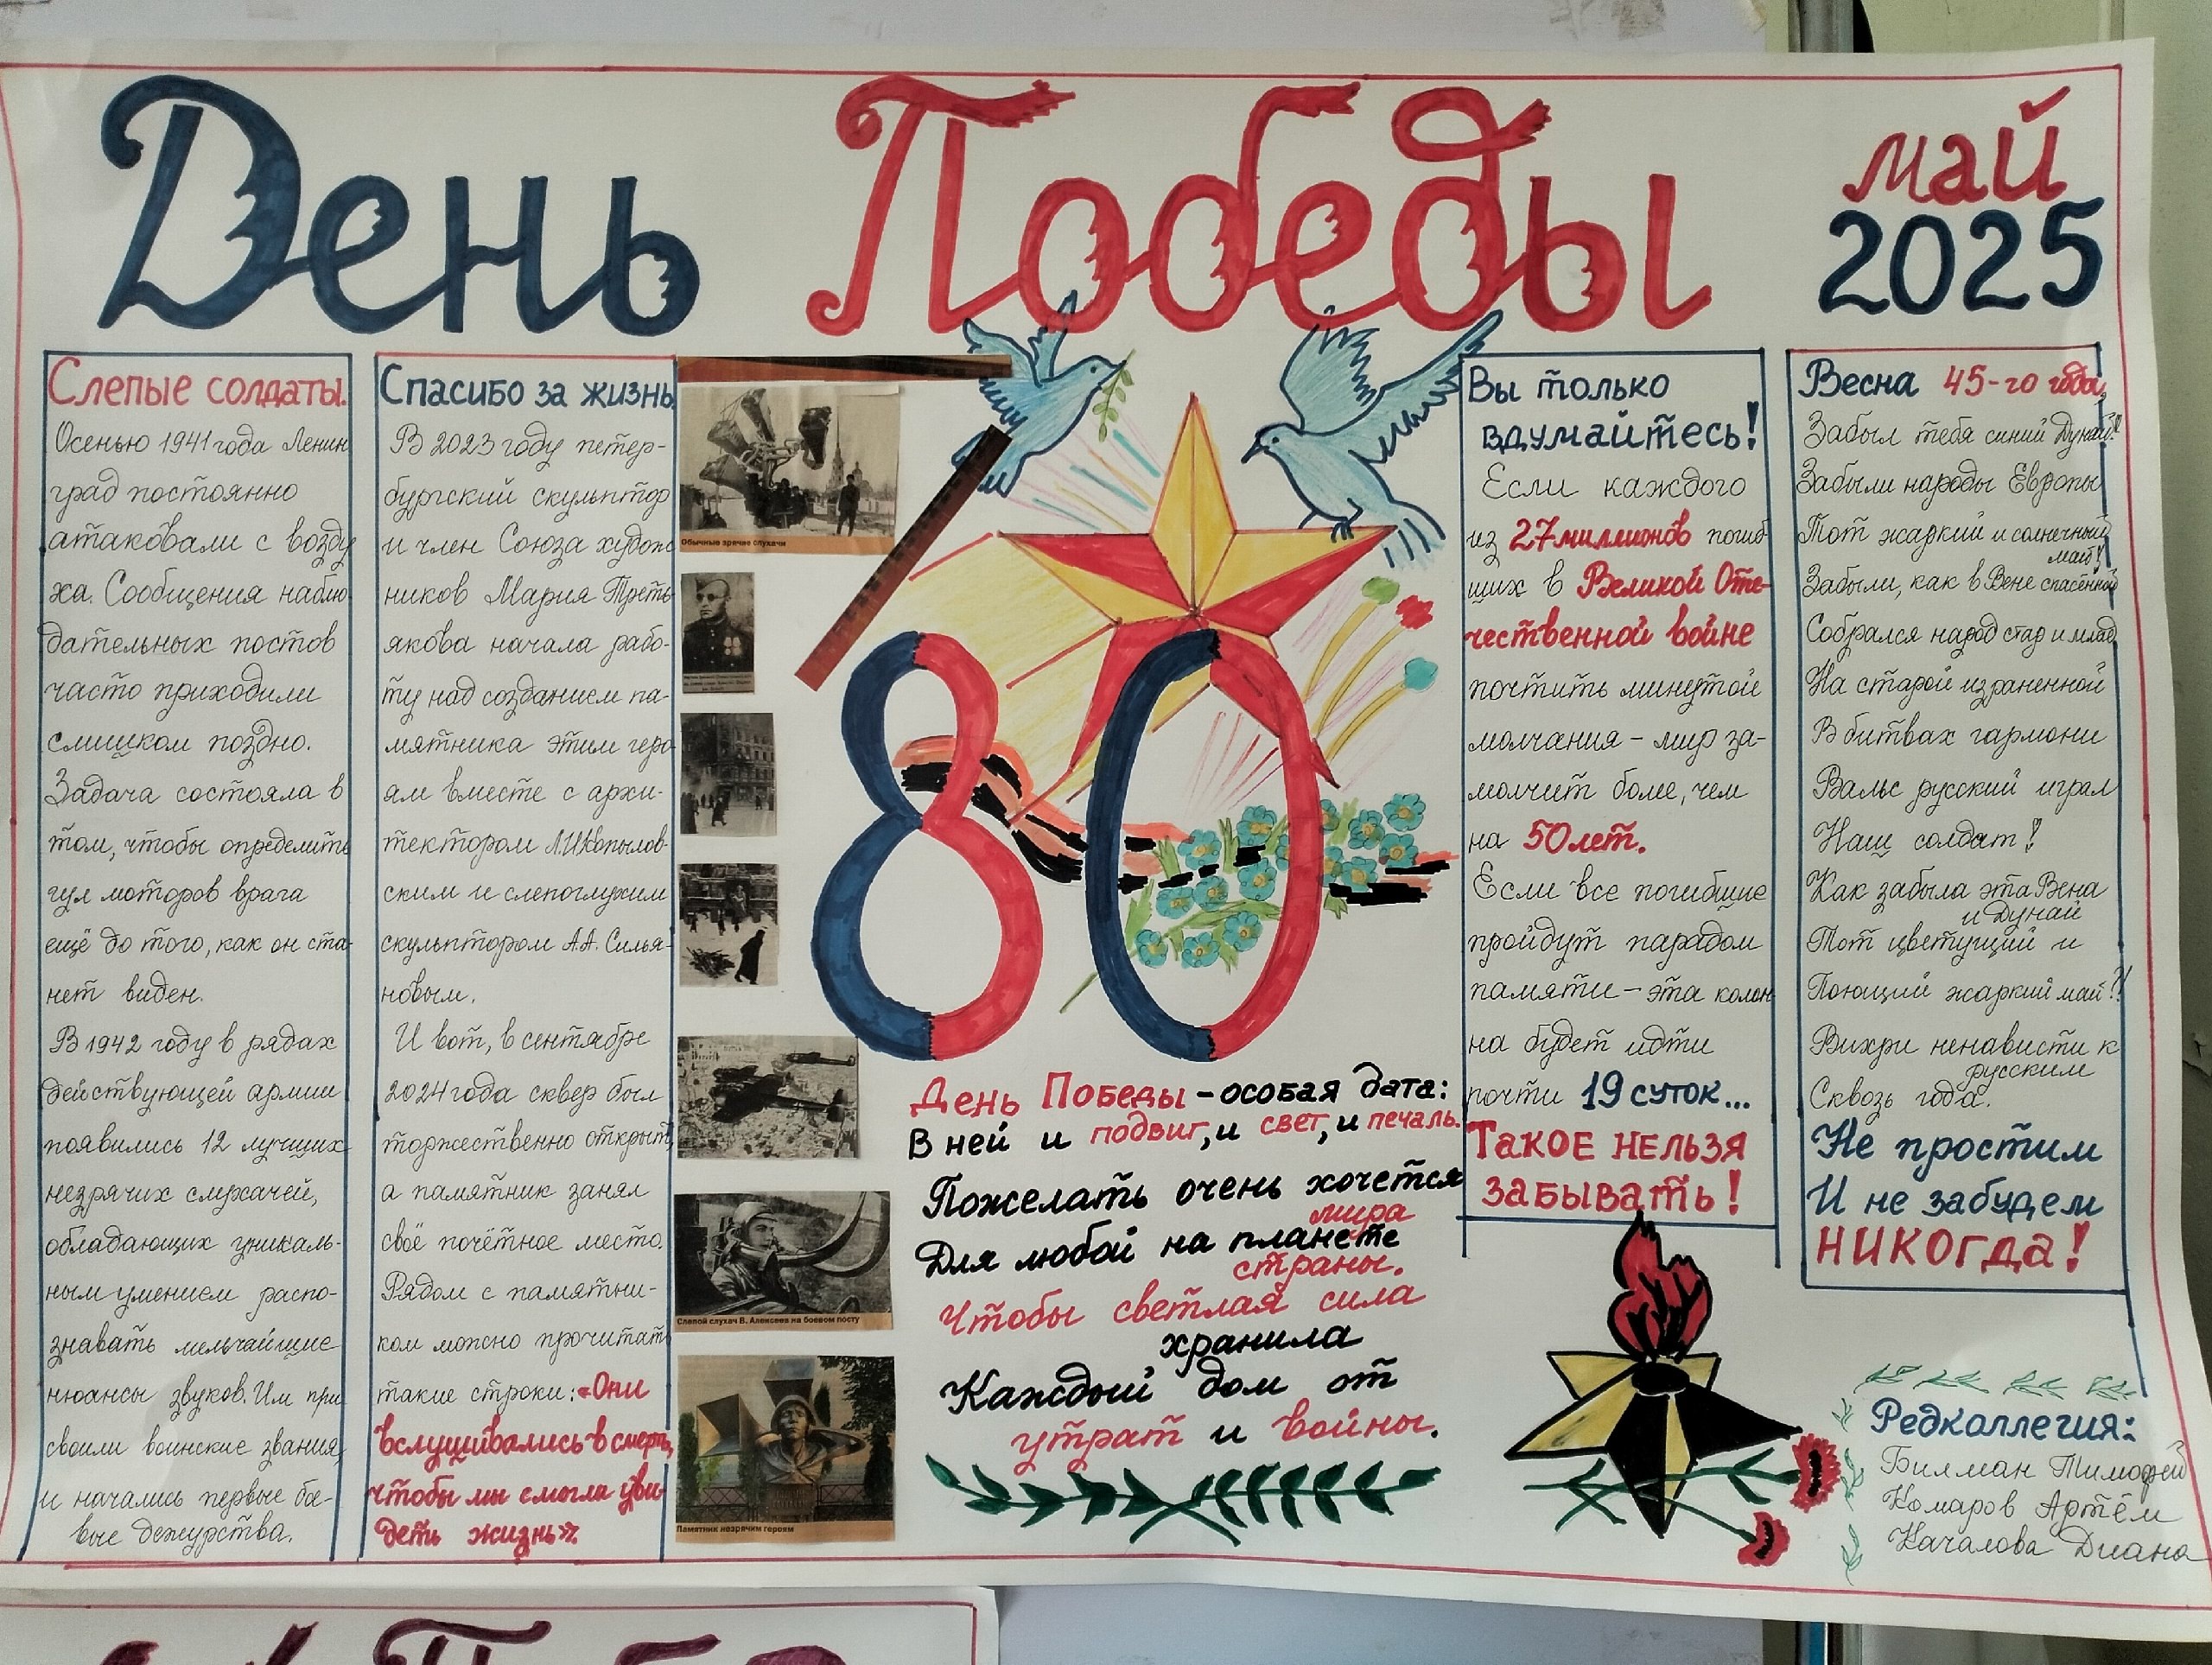 День Победы
май
2025
Слепые солдаты.
Осенью 1941 года Ленин
град постоянно
атаковали с возду
ха. Сообщения наблю-
дательных постов
часто приходили
слишком поздно.
Задача состояла в
том, чтобы определить
гул моторов врага
ещё до того, как он ста-
нет виден.
В 1942 году в рядах
действующей армии
появились 12 лучших
незрячих слухачей,
обладающих уникаль-
ным умением распо-
знавать мельчайшие
нюансы звуков. Им при
своили воинские звания,
и начались первые бо-
вые дежурства.
Спасибо за жизнь
В 2023 году петер-
бургский скульптор
и член Союза худож
ников Мария Треть
якова начала рабо-
ту над созданием па-
мятника этим геро
ям вместе с архи-
тектором Л.И.Копылов-
ским и слепоглухим
скульптором А.А. Силья-
новым.
И вот, в сентябре
2024 года сквер был
торжественно открыт,
а памятник занял
своё почётное место.
Рядом с памятни-
ком можно прочитать
такие строки: «Они
вслушивались в смерть,
чтобы мы смогли уви-
деть жизнь».
Обычные зрячие слухачи
Слепой слухач В. Алексеев на боевом посту
Памятник незрячим героям
80
День Победы - особая дата:
В ней и подвиг, и свет, и печаль.
Пожелать очень хочется
мира
Для любой на планете
страны.
Чтобы светлая сила
хранила
Каждый дом от
утрат и войны.
Вы только
вдумайтесь!
Если каждого
из 27 миллионов погиб
ших в Великой Оте-
чественной войне
почтить минутой
молчания - мир за-
молчит более, чем
на 50 лет.
Если все погибшие
пройдут парадом
памяти - эта колон
на будет идти
почти 19 суток...
Такое нельзя
забывать!
Весна 45-го года.
Забыл тебя синий Дунай?!
Забыли народы Европы
Тот жаркий и солнечный
май!
Забыли, как в Вене спасённой
Собрался народ стар и млад,
На старой израненной
В битвах гармони
Вальс русский играл
Наш солдат!
Как забыла эта Вена
и Дунай
Тот цветущий и
Поющий жаркий май?!
Вихри ненависти к
русским
Сквозь года.
Не простим
И не забудем
НИКОГДА!
Редколлегия:
Билман Тимофей
Комаров Артём
Качалова Диана